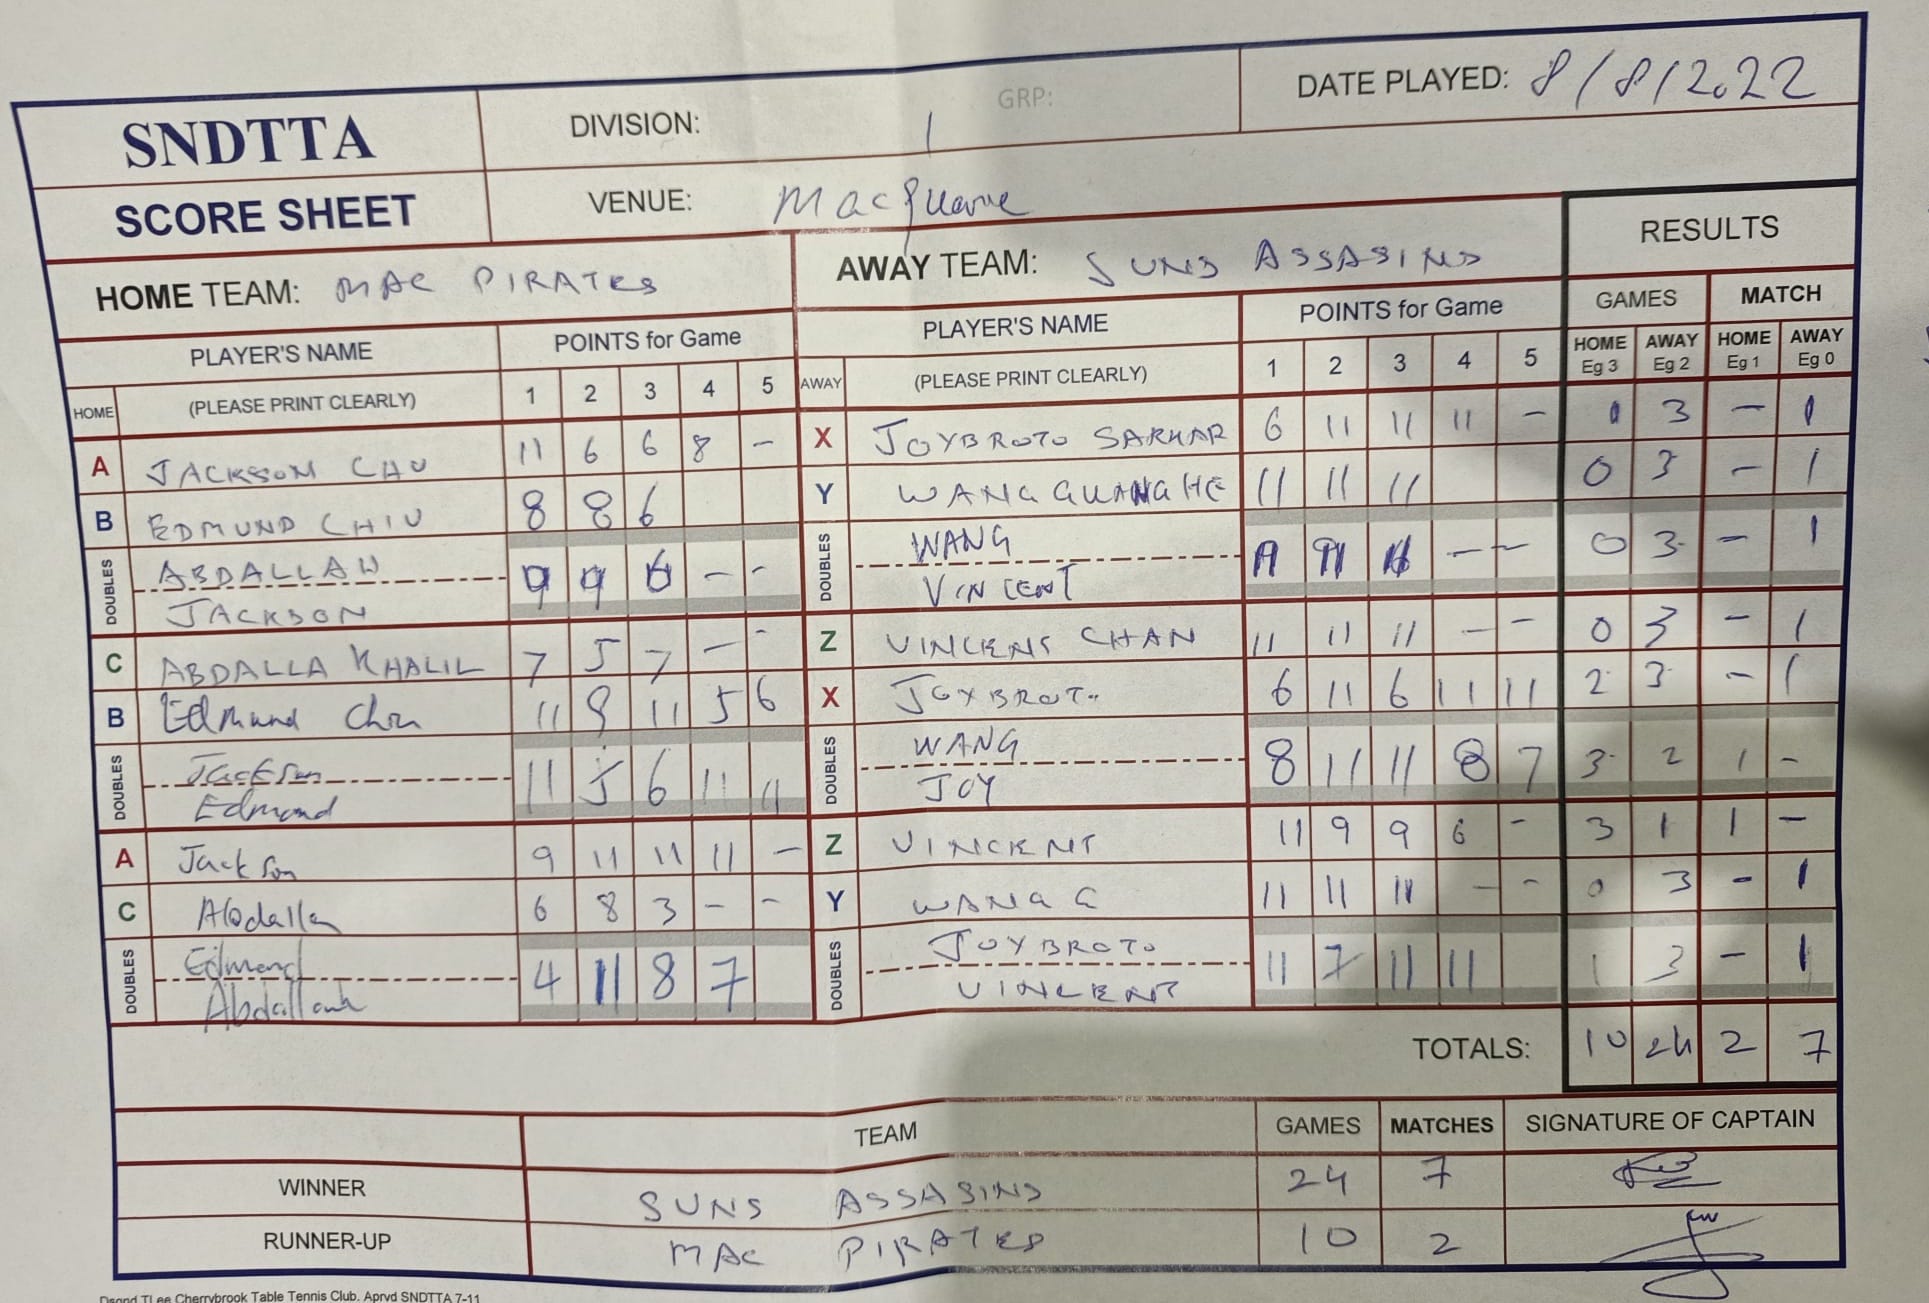 SNDTTA DIVISION: 1 GRP: DATE PLAYED: 8/8/2022
SCORE SHEET VENUE: Macquarie
RESULTS
HOME TEAM: MAC PIRATES AWAY TEAM: SUNS ASSASINS
GAMES MATCH
PLAYER'S NAME POINTS for Game PLAYER'S NAME POINTS for Game
HOME AWAY HOME AWAY
HOME (PLEASE PRINT CLEARLY) 1 2 3 4 5 AWAY (PLEASE PRINT CLEARLY) 1 2 3 4 5 Eg 3 Eg 2 Eg 1 Eg 0
A JACKSON CHU 11 6 6 8 - X JOYBROTO SARKAR 6 11 11 11 - 1 3 - 1
B EDMUND CHIU 8 8 6 Y WANG GUANGHE 11 11 11 0 3 - 1
DOUBLES ABDALLAH 9 9 6 - - DOUBLES WANG 11 11 11 - - 0 3 - 1
JACKSON VINCENT
C ABDALLA KHALIL 7 5 7 - - Z VINCENT CHAN 11 11 11 - - 0 3 - 1
B Edmund Chiu 11 9 11 5 6 X JOYBROTO 6 11 6 11 11 2 3 - 1
DOUBLES Jackson 11 5 6 11 11 DOUBLES WANG 8 11 11 8 7 3 2 1 -
Edmond JOY
A Jackson 9 11 11 11 - Z VINCENT 11 9 9 6 - 3 1 1 -
C Abdalla 6 8 3 - - Y WANG G 11 11 11 - - 0 3 - 1
DOUBLES Edmond 4 11 8 7 DOUBLES JOYBROTO 11 7 11 11 1 3 - 1
Abdallah VINCENT
TOTALS: 10 24 2 7
TEAM GAMES MATCHES SIGNATURE OF CAPTAIN
WINNER SUNS ASSASINS 24 7
RUNNER-UP MAC PIRATES 10 2
Dsgnd TLee Cherrybrook Table Tennis Club. Aprvd SNDTTA 7-11